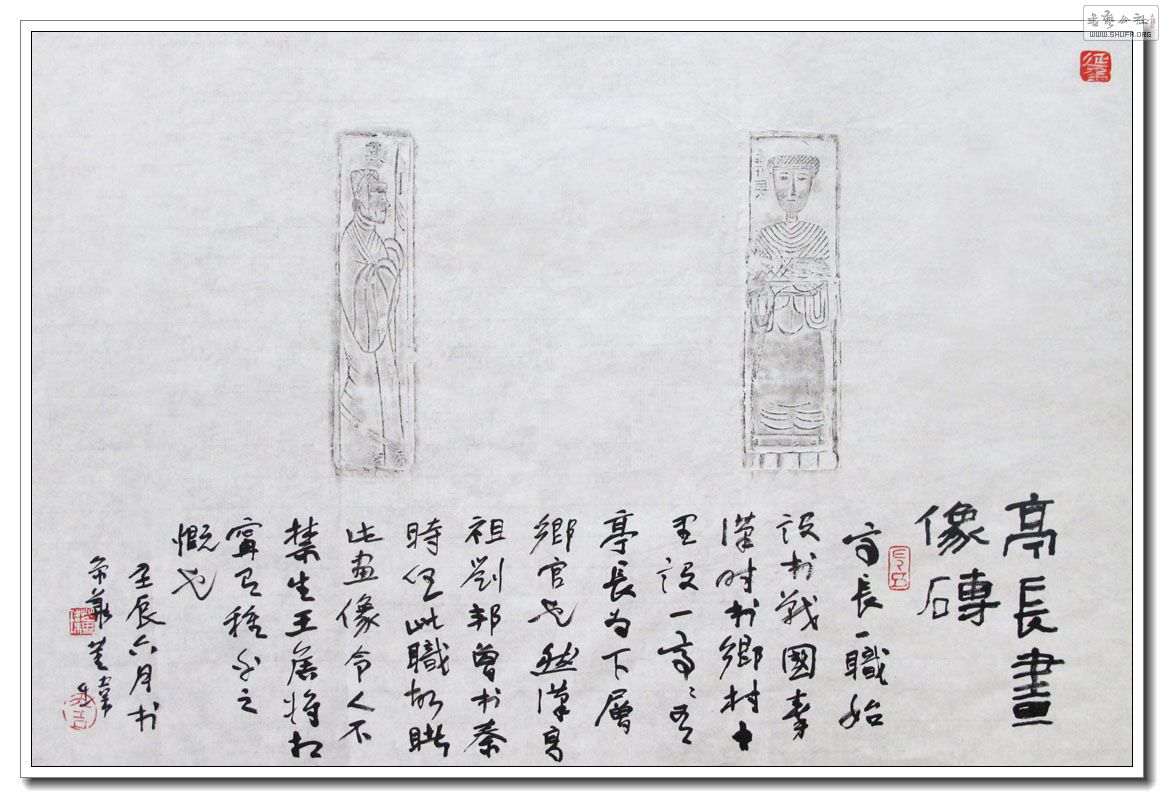 書藝公社
WWW.SHUFA.ORG
亭長畫
像磚
亭長一職始
設於戰國秦
漢時於鄉村十
里設一亭〻有
亭長為下層
鄉官也然漢高
祖劉邦曾於秦
時任此職故睹
此畫像令人不
禁生王侯將相
寧有種乎之
慨也
壬辰六月於